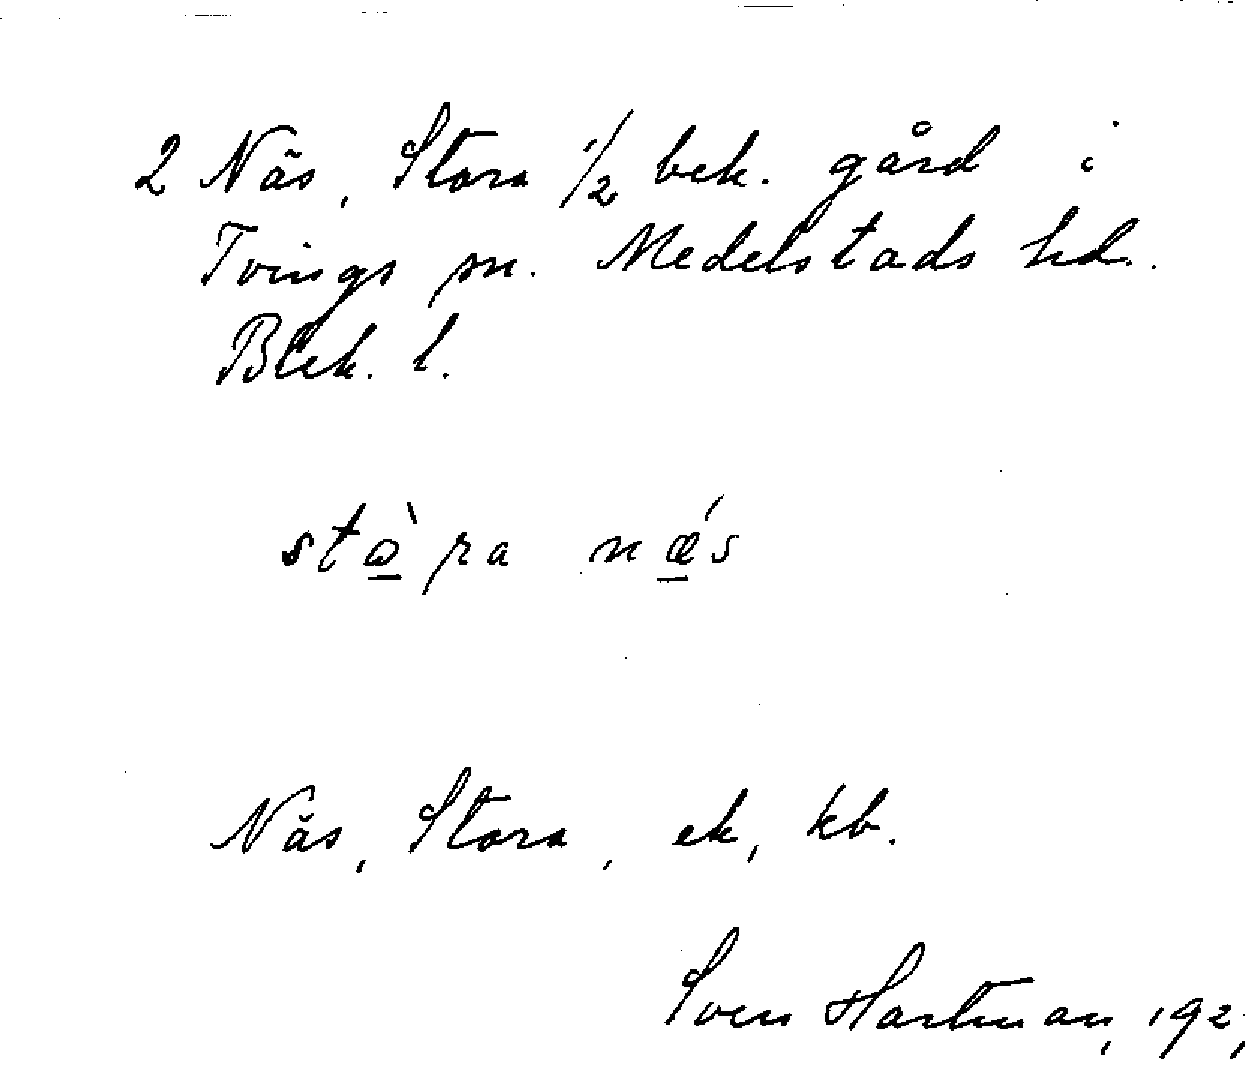 2 Näs, Stora 1/2 bek. gård i
Tvings sn. Medelstads hd.
Blek. l.
stò̱ra nǽ̱s
Näs, Stora, ek, kb.
Sven Hartman, 192